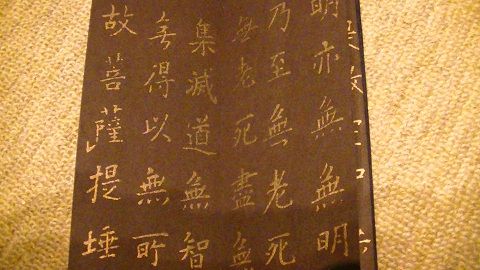 明亦無無明
乃至無老死
無老死盡無
集滅道無智
無得以無所
故菩薩提埵